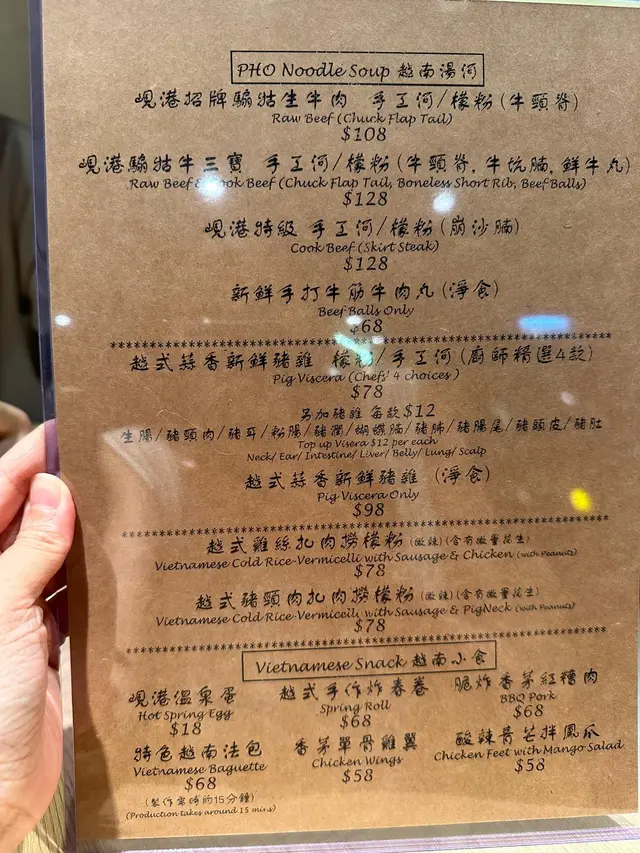 PHO Noodle Soup 越南湯河
峴港招牌騸牯生牛肉 手工河/檬粉(牛頸脊)
Raw Beef (Chuck Flap Tail)
$108
峴港騸牯牛三寶 手工河/檬粉(牛頸脊,牛坑腩,鮮牛丸)
Raw Beef & Cook Beef (Chuck Flap Tail, Boneless Short Rib, Beef Balls)
$128
峴港特級 手工河/檬粉(崩沙腩)
Cook Beef (Skirt Steak)
$128
新鮮手打牛筋牛肉丸(淨食)
Beef Balls Only
$68
越式蒜香新鮮豬雜 檬粉/手工河(廚師精選4款)
Pig Viscera (Chefs' 4 choices)
$78
另加豬雜 每款$12
生腸/豬頸肉/豬耳/粉腸/豬潤/蝴蝶腩/豬肺/豬腸尾/豬頭皮/豬肚
Top up Visera $12 per each
Neck/Ear/Intestine/Liver/Belly/Lung/Scalp
越式蒜香新鮮豬雜 (淨食)
Pig Viscera Only
$98
越式雞絲扎肉撈檬粉(微辣)(含有微量花生)
Vietnamese Cold Rice-Vermicelli with Sausage & Chicken (with Peanuts)
$78
越式豬頸肉扎肉撈檬粉(微辣)(含有微量花生)
Vietnamese Cold Rice-Vermicelli with Sausage & PigNeck (with Peanuts)
$78
Vietnamese Snack 越南小食
峴港溫泉蛋 越式手作炸春卷 脆炸香茅紅糟肉
Hot Spring Egg Spring Roll BBQ Pork
$18 $68 $68
特色越南法包 香茅單骨雞翼 酸辣青芒拌鳳爪
Vietnamese Baguette Chicken Wings Chicken Feet with Mango Salad
$68 $58 $58
(製作需時約15分鐘)
(Production takes around 15 mins)